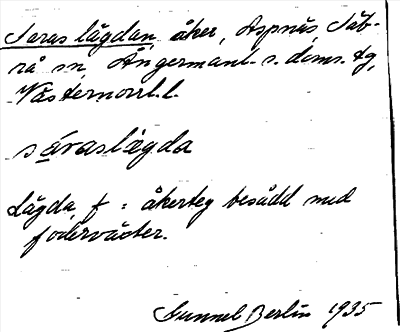 Saras lägdan, åker, Aspnäs, Säb-
rå sn, Ångermanl. s. doms. tg,
Västernorrl. l.
sáraslägda
Lägda, f = åkerteg besådd med
foderväxter.
Gunnel Berlin 1935